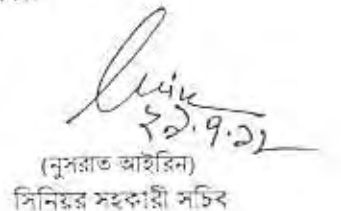 ২৯.৭.১২
(নুসরাত আইরিন)
সিনিয়র সহকারী সচিব